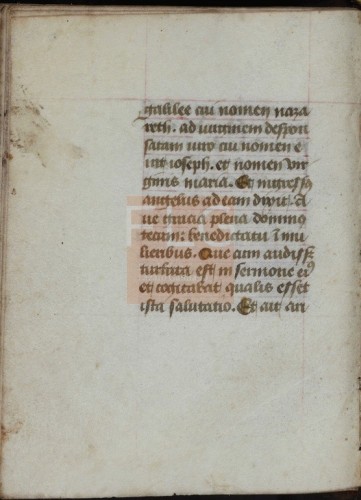 galilee cui nomen naza
reth. ad virginem despon
satam viro cui nomen e
rat ioseph. et nomen vir
ginis maria. Et ingressꝰ
angelus ad eam dixit. A
ue gracia plena dominꝰ
tecum: benedicta tu ī mu
lieribus. Que cum audiss
turbata est in sermone eiꝰ
et cogitabat qualis esset
ista salutatio. Et ait an